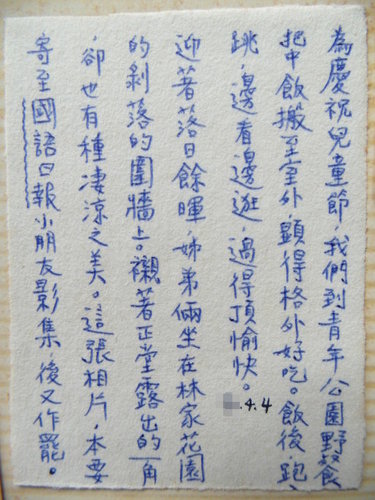 為慶祝兒童節,我們到青年公園野餐
把中飯搬至室外,顯得格外好吃。飯後,跑
跳,邊看邊逛,過得頂愉快。
.4.4
迎著落日餘暉,姊弟倆坐在林家花園
的剝落的圍牆上。襯著正堂露出的一角
,卻也有種淒涼之美。這張相片,本要
寄至國語日報小朋友影集,後又作罷。